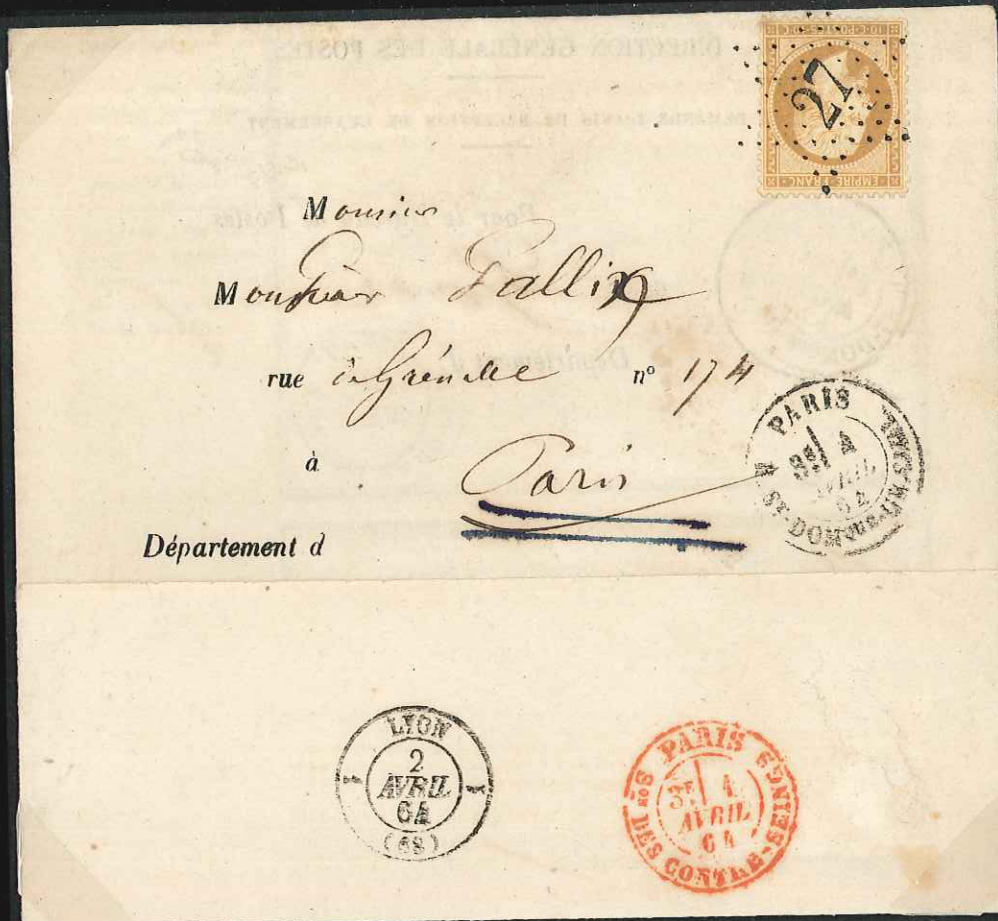 DIRECTION GÉNÉRALE DES POSTES
10 C. POSTES 10 C.
27
EMPIRE FRANC
Monsieur
Monsieur Pallix
rue de Grenelle n° 174
à Paris
Département d
PARIS
3E 4
AVRIL
64
LYON
2
AVRIL
64
(68)
1 1
PARIS
3E 4
AVRIL
64
SON DES CONTRE-SEINGS